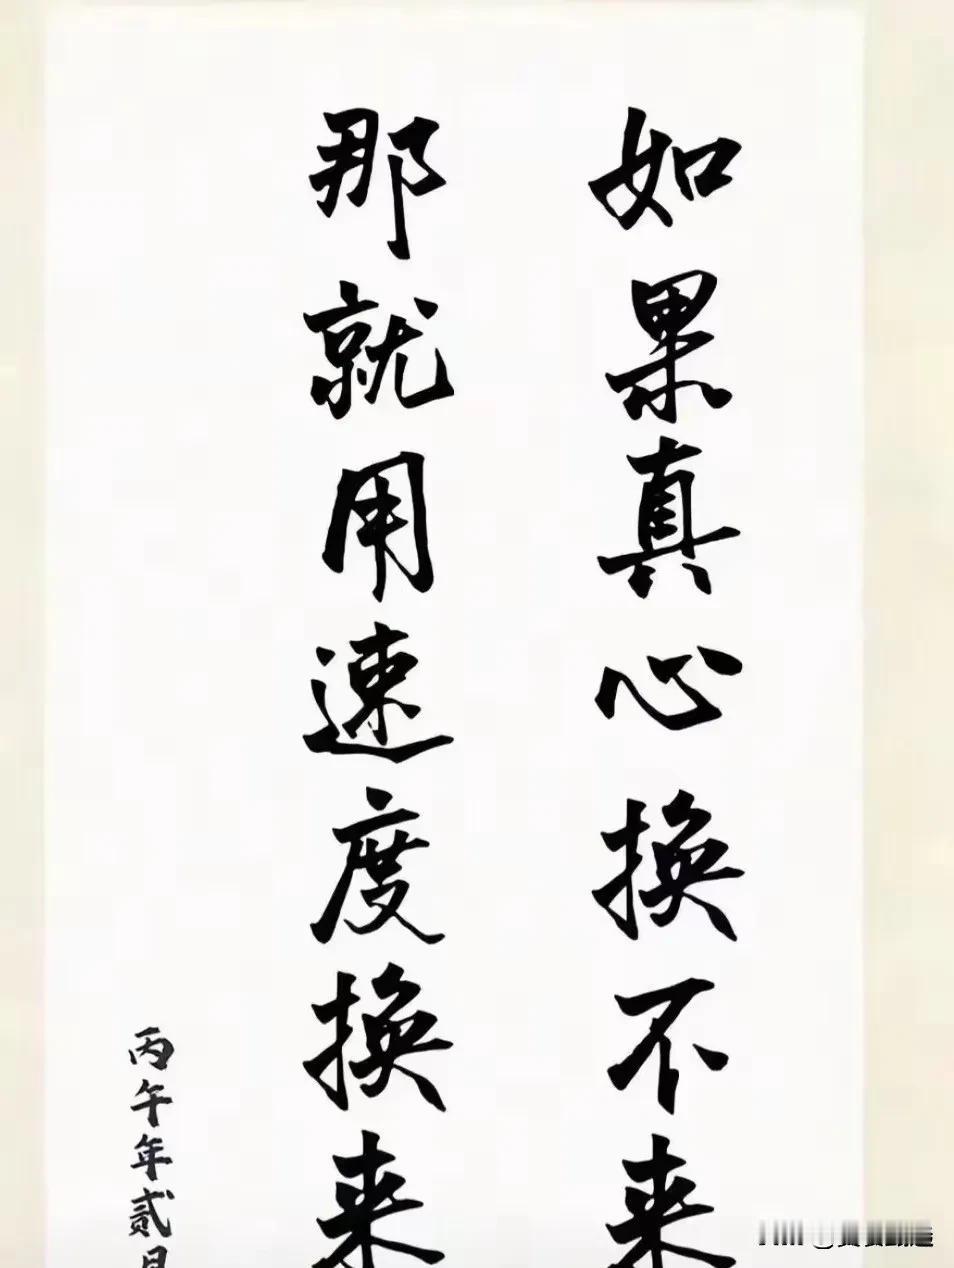 如果真心换不来
那就用速度换来
丙午年贰月